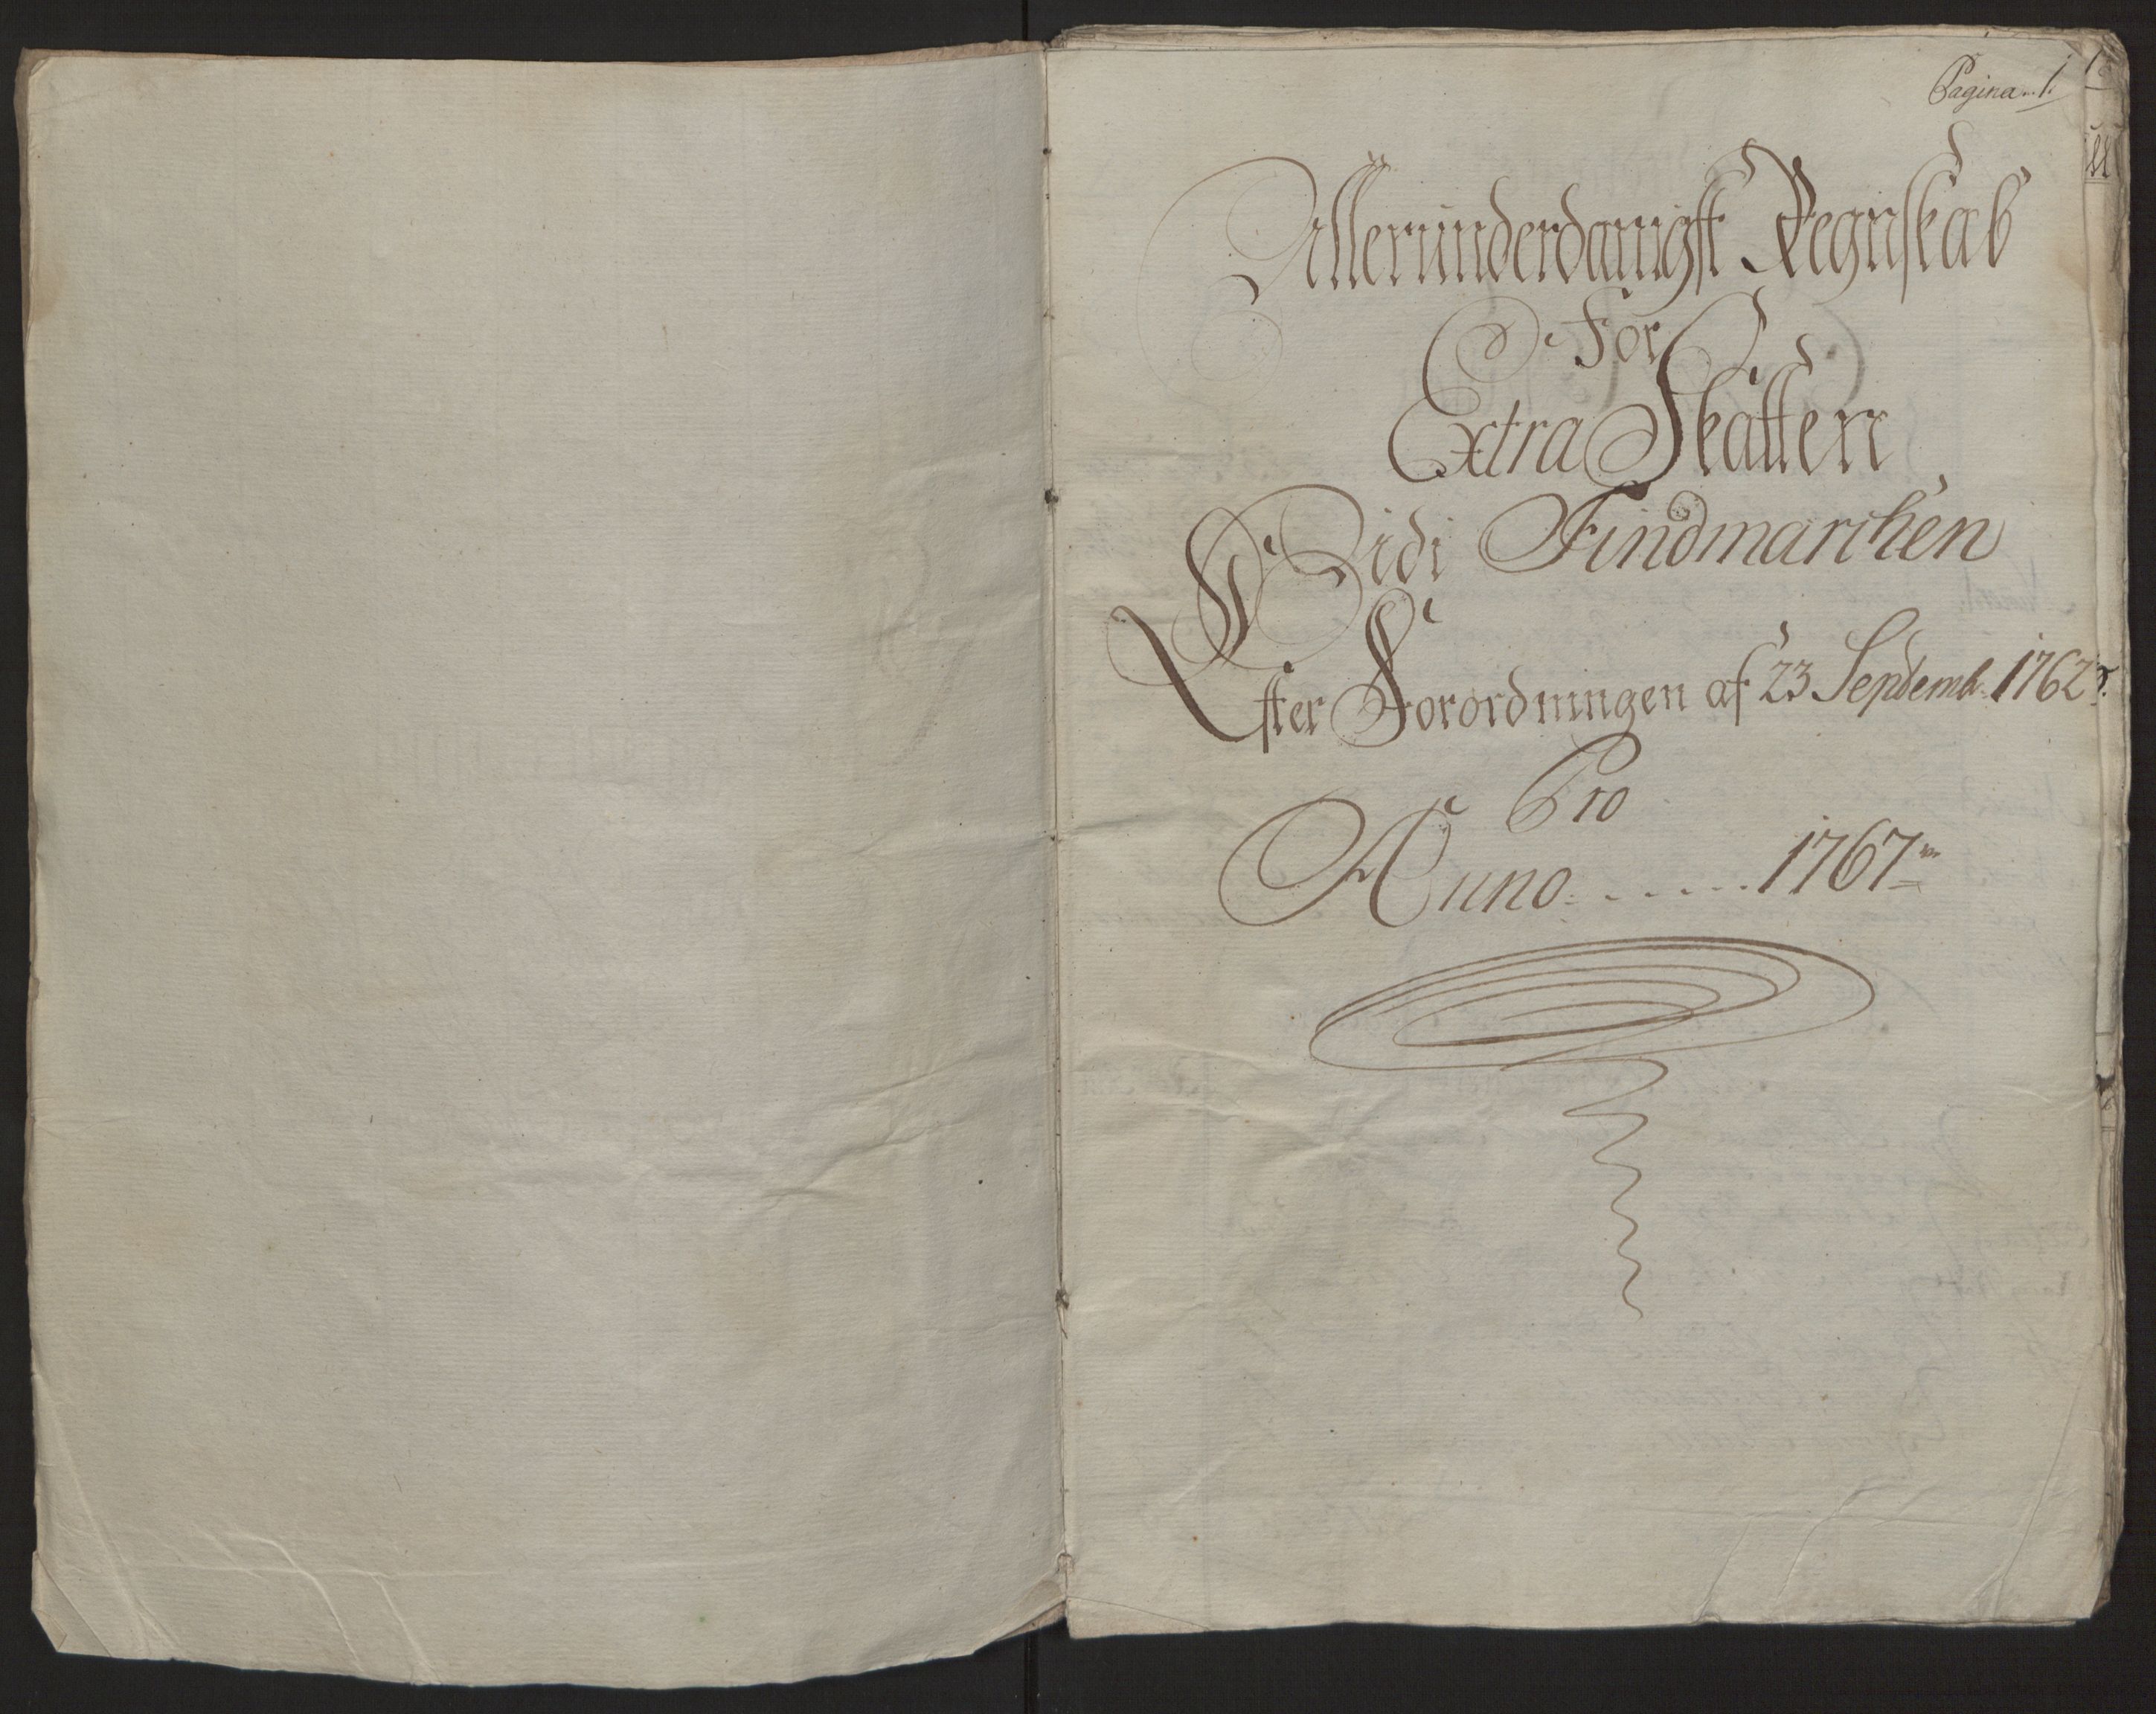 Pagina 1.
Allerunderdanigst Regnskab
For
Extra Skatten
Udi Findmarchen
Efter Forordningen af 23 Septembr: 1762
Pro
Anno . . . . . . 1767